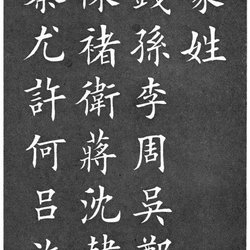 家姓
錢孫李周吳鄭
陳褚衛蔣沈韓
秦尤許何呂